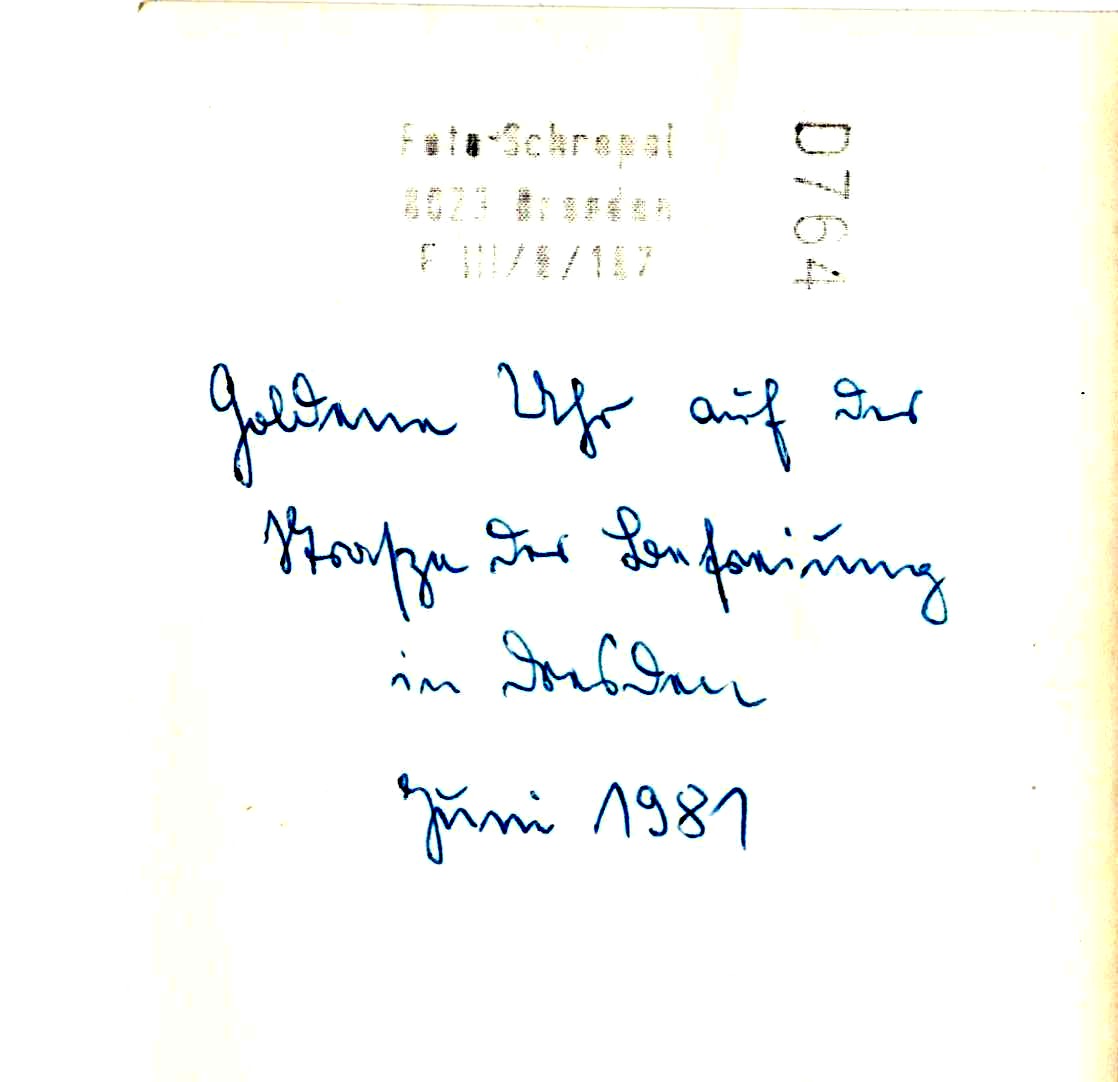 Foto-Schrapel
8023 Dresden
D764
Goldene Uhr auf der
Strasze der Befreiung
in Dresden
Juni 1981